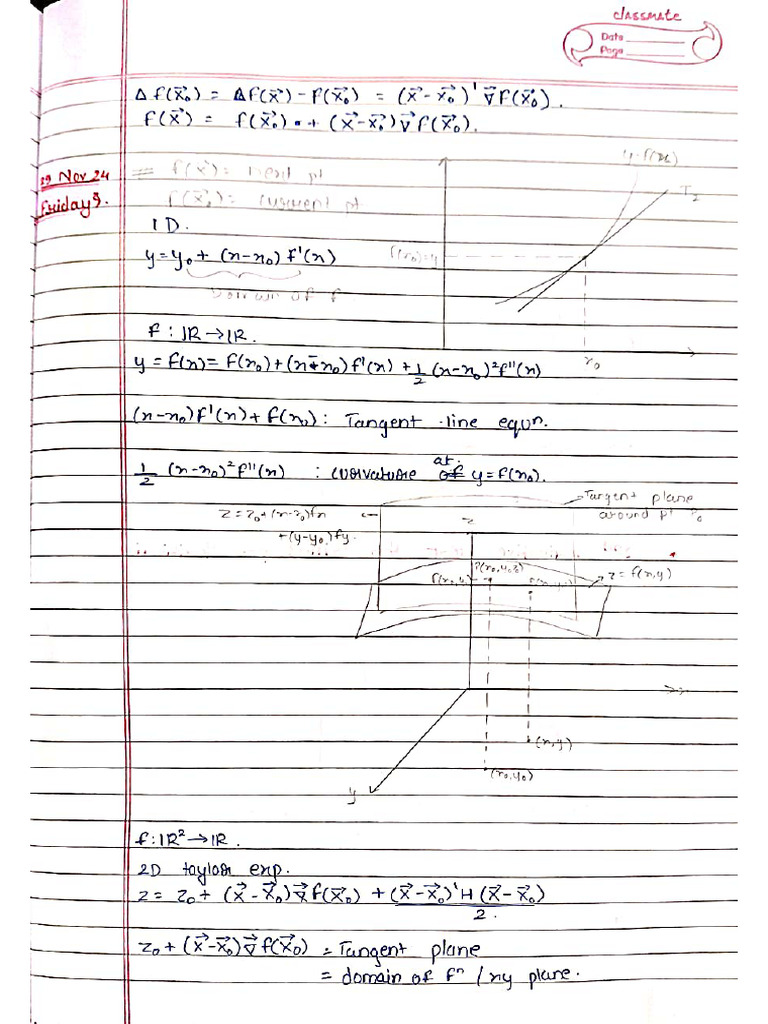 classmate
Date
Page
Δf(x⃗₀) = Δf(x⃗) - f(x⃗₀) = (x⃗-x⃗₀)' ∇⃗f(x⃗₀).
f(x⃗) = f(x⃗₀) + (x⃗-x⃗₀)∇⃗f(x⃗₀).
29 Nov 24
Friday
f(x⃗) = next pt
f(x⃗₀) = current pt
1D.
y = y₀ + (x-x₀) f'(x)
domain of f
y=f(x)
f(x₀)=y
x₀
f : IR → IR.
y = f(x) = f(x₀) + (x-x₀) f'(x) + 1/2 (x-x₀)² f''(x)
(x-x₀)f'(x) + f(x₀) : Tangent line equn.
1/2 (x-x₀)² f''(x) : curvature at y = f(x₀).
Tangent plane
around pt P₀
z = z₀+(x-x₀)fx
+(y-y₀)fy.
z
P(x₀,y₀,z)
z = f(x,y)
x
(x,y)
(x₀,y₀)
y
f : IR² → IR.
2D taylor exp.
z = z₀ + (x⃗-x⃗₀)∇⃗f(x⃗₀) + (x⃗-x⃗₀)'H(x⃗-x⃗₀)/2.
z₀ + (x⃗-x⃗₀)∇⃗f(x⃗₀) = Tangent plane
= domain of fⁿ / xy plane.